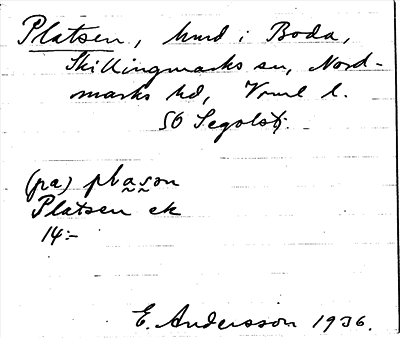 Platsen, hmd i Boda,
Skillingmarks sn, Nord-
marks hd, Vrml l.
50 Segolst.
(pa) plason
Platsen ek
14:-
E. Andersson 1936.